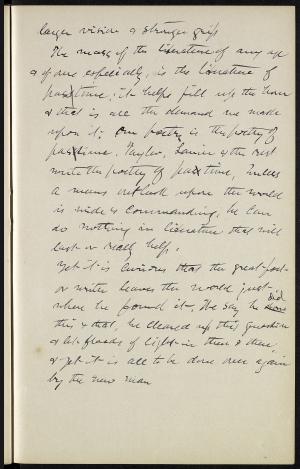 larger vision & stronger grip
The mass of the literature of any age
& of ours especially, is the literature of
pastime. It helps fill up the hour
& that is all the demand we make
upon it; Our poetry is the poetry of
pastime. Taylor, Lanier & the rest
write the poetry of pastime, Unless
a mans outlook upon the world
is wide & commanding, he can
do nothing in literature that will
last or really help.
Yet it is curious that the great poet
or writer leaves the world just
where he found it. We say he did
this & that, he cleared up this question
& let floods of light in there & there,
& yet it is all to be done over again
by the new man